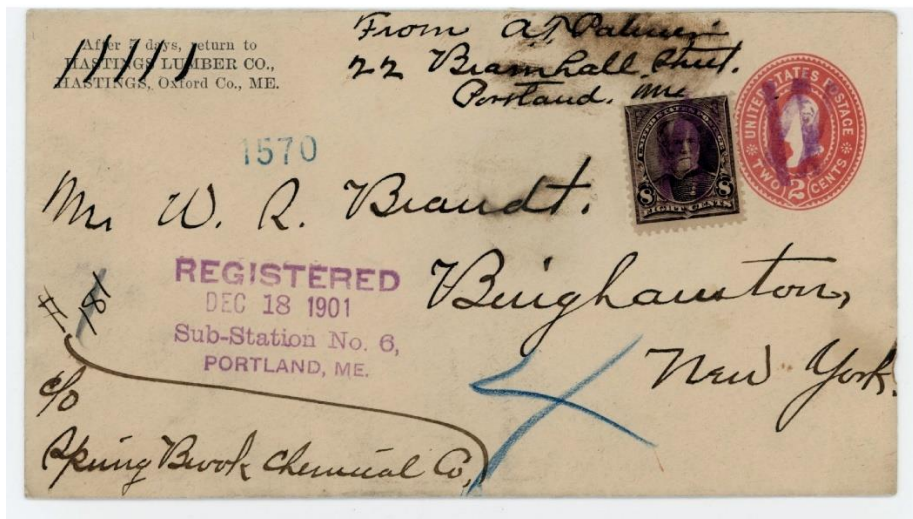 After 5 days, return to
HASTINGS LUMBER CO.,
HASTINGS, Oxford Co., ME.
From A.J. Palmer
22 Bramhall Street.
Portland. Me
UNITED STATES POSTAGE
TWO 2 CENTS
8 8
EIGHT CENTS
1570
Mr W. R. Brandt.
Binghamton,
New York.
REGISTERED
DEC 18 1901
Sub-Station No. 6,
PORTLAND, ME.
# 181
c/o
Spring Brook Chemical Co,